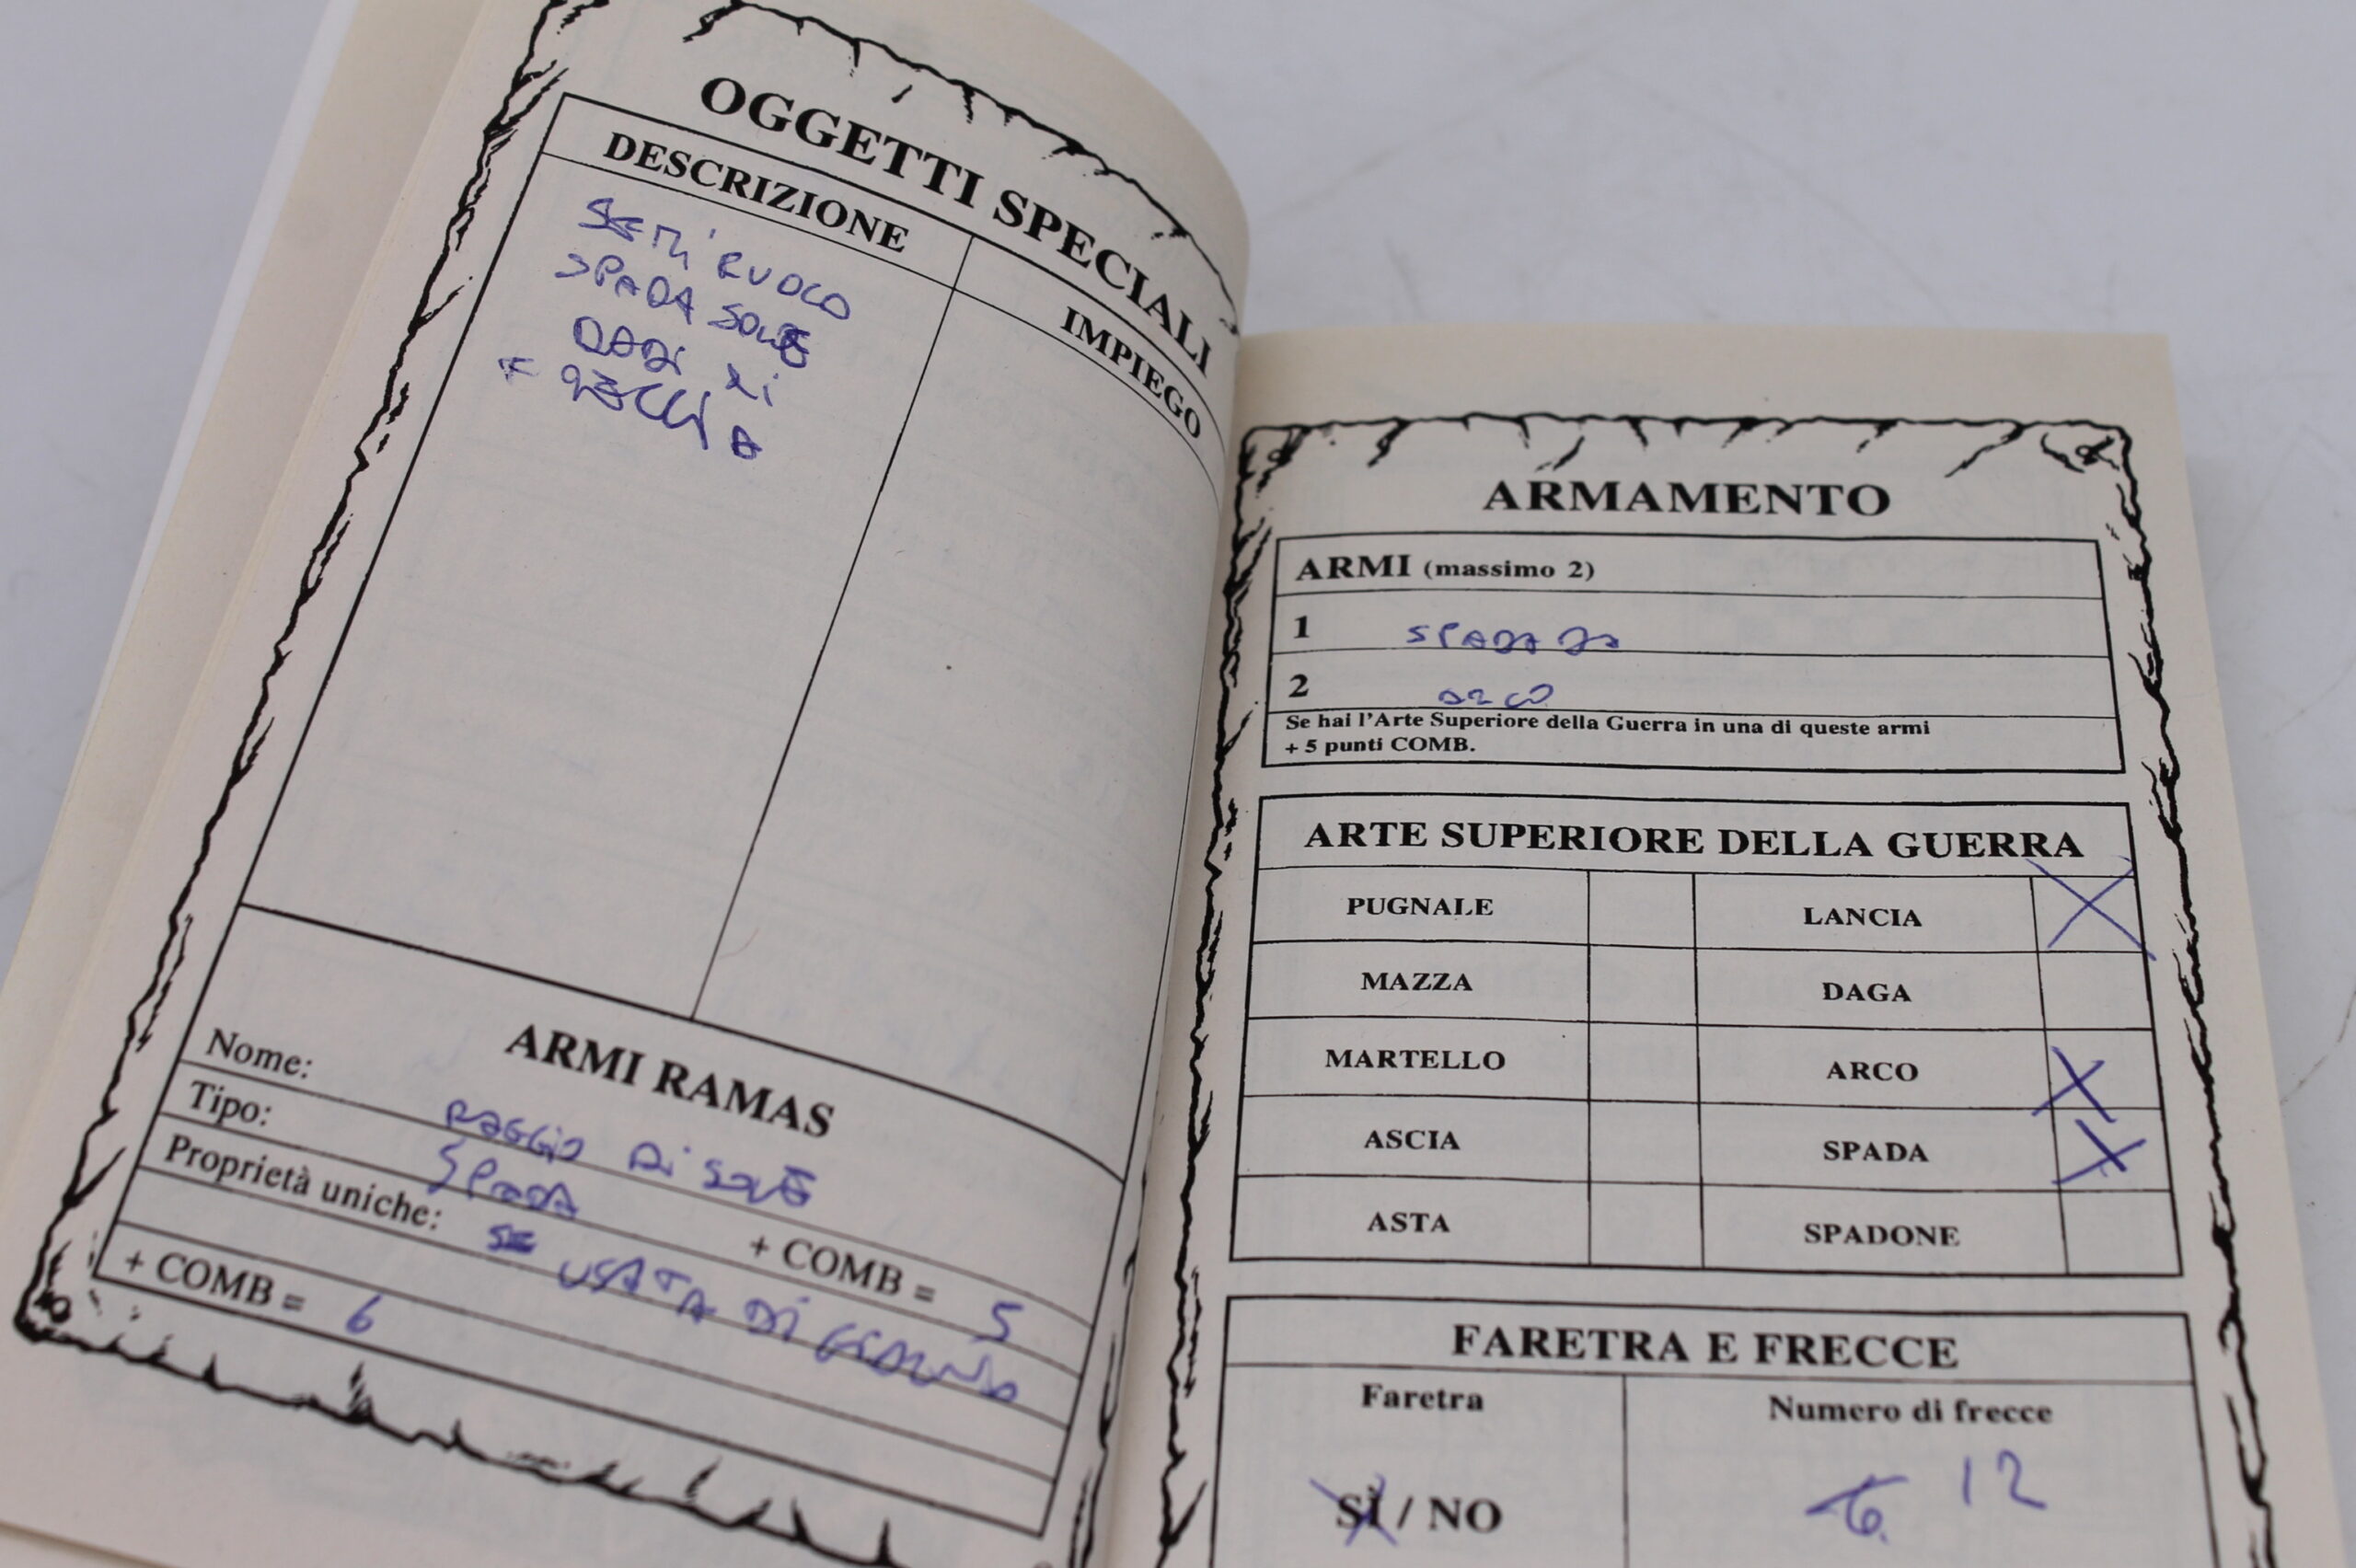 OGGETTI SPECIALI
DESCRIZIONE
IMPIEGO
SEMI FUOCO
SPADA SOLE
DADI DI
FRECCIA
ARMI RAMAS
Nome: RAGGIO DI SOLE
Tipo: SPADA + COMB = 5
Proprietà uniche: SE USATA DI GIORNO
+ COMB = 6
ARMAMENTO
ARMI (massimo 2)
1 SPADA
2 ARCO
Se hai l'Arte Superiore della Guerra in una di queste armi
+ 5 punti COMB.
ARTE SUPERIORE DELLA GUERRA
PUGNALE LANCIA X
MAZZA DAGA
MARTELLO ARCO X
ASCIA SPADA X
ASTA SPADONE
FARETRA E FRECCE
Faretra Numero di frecce
SÌ / NO 6 12